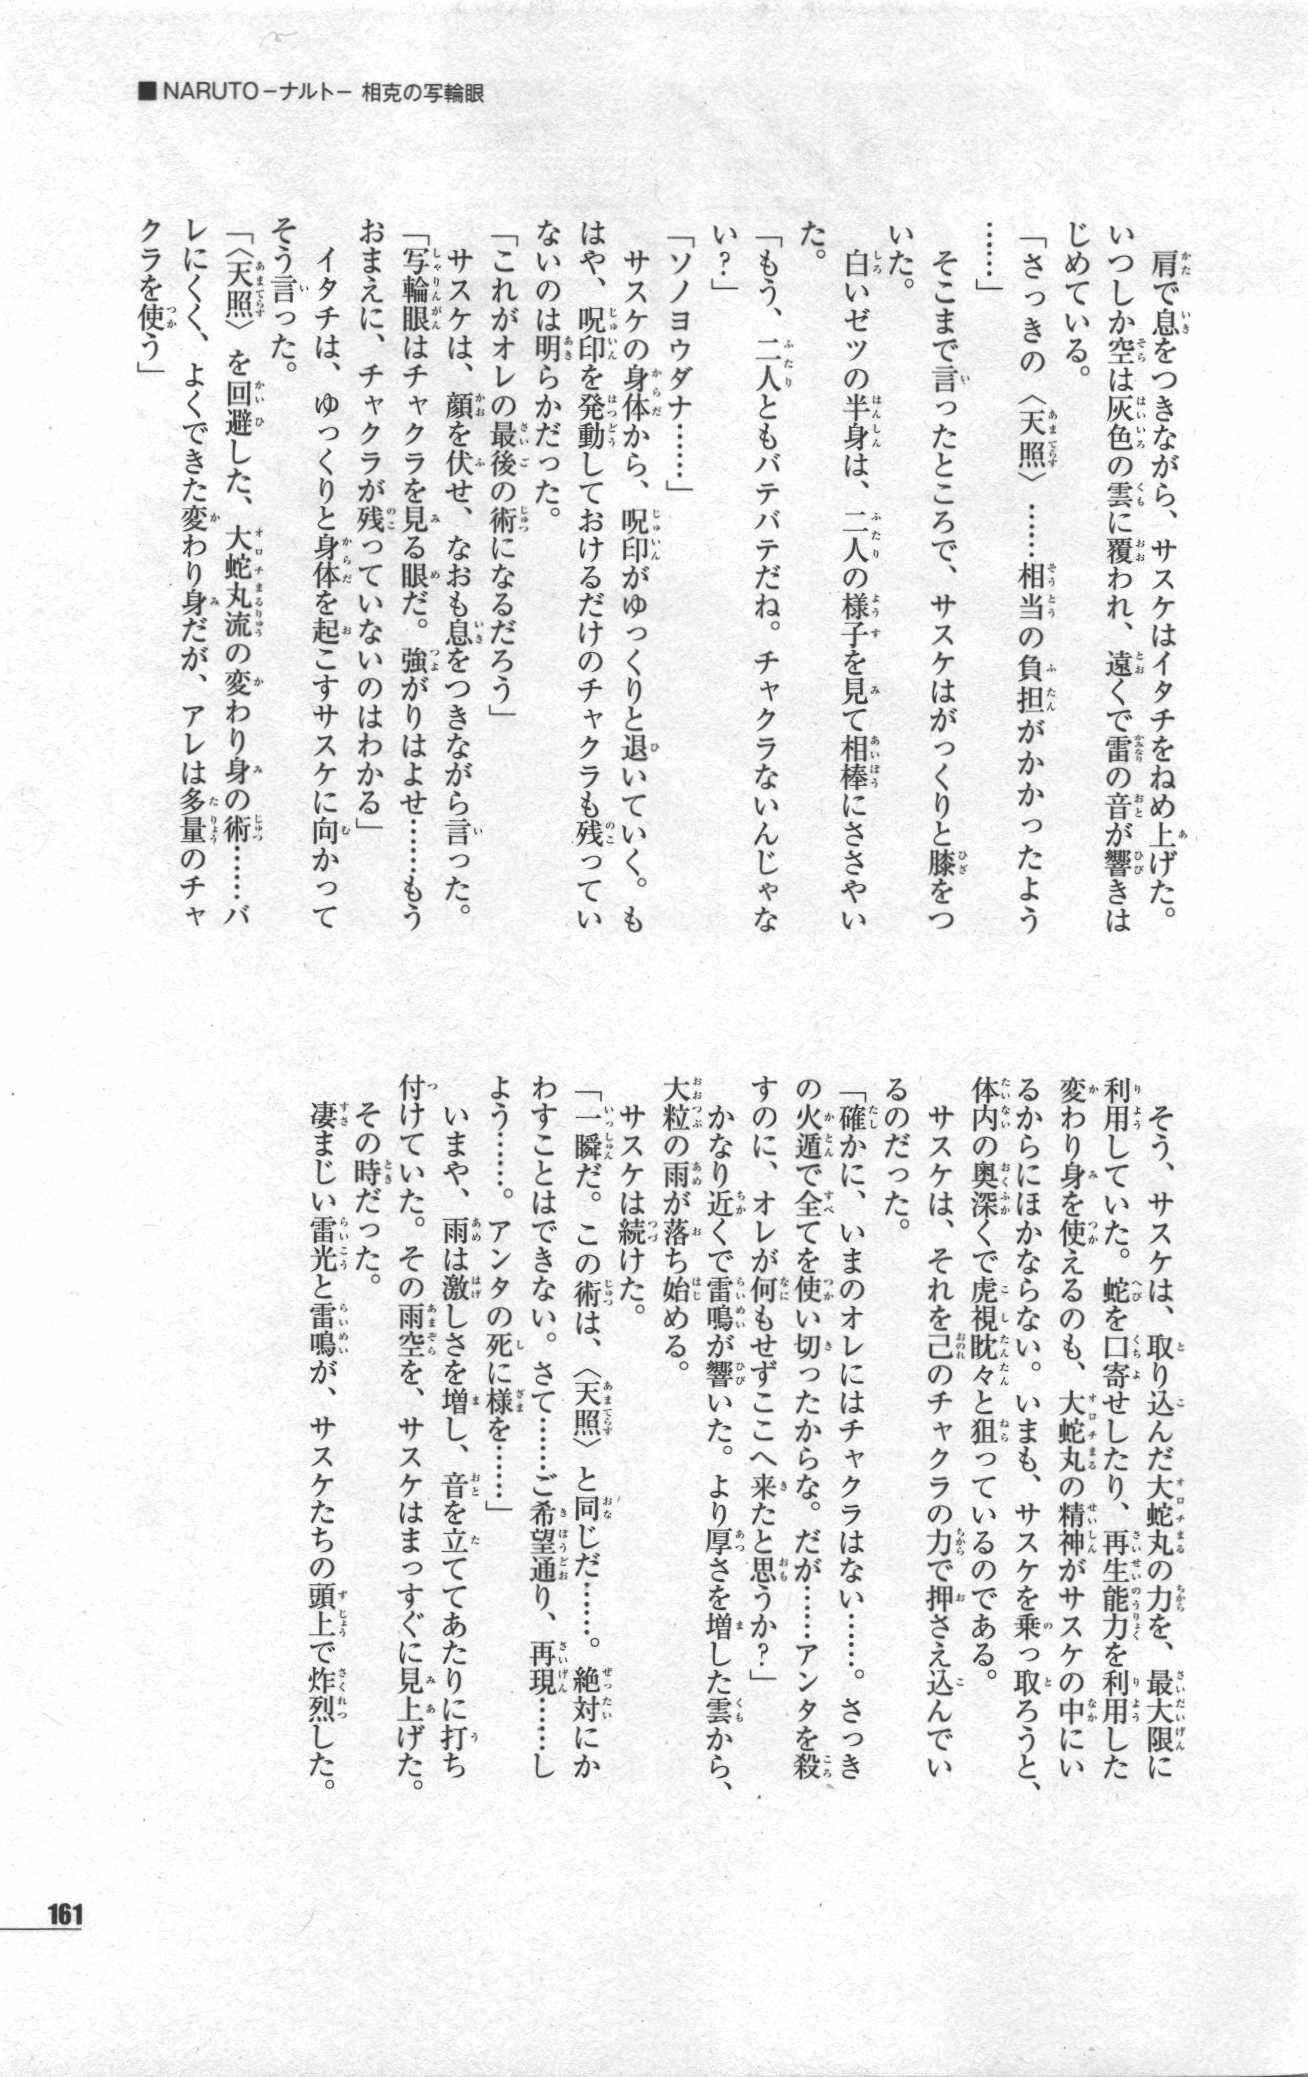 ■NARUTO－ナルト－ 相克の写輪眼
肩で息をつきながら、サスケはイタチをねめ上げた。
いつしか空は灰色の雲に覆われ、遠くで雷の音が響きは
じめている。
「さっきの〈天照〉……相当の負担がかかったよう
……」
そこまで言ったところで、サスケはがっくりと膝をつ
いた。
白いゼツの半身は、二人の様子を見て相棒にささやい
た。
「もう、二人ともバテバテだね。チャクラないんじゃな
い？」
「ソノヨウダナ……」
サスケの身体から、呪印がゆっくりと退いていく。も
はや、呪印を発動しておけるだけのチャクラも残ってい
ないのは明らかだった。
「これがオレの最後の術になるだろう」
サスケは、顔を伏せ、なおも息をつきながら言った。
「写輪眼はチャクラを見る眼だ。強がりはよせ……もう
おまえに、チャクラが残っていないのはわかる」
イタチは、ゆっくりと身体を起こすサスケに向かって
そう言った。
「〈天照〉を回避した、大蛇丸流の変わり身の術……バ
レにくく、よくできた変わり身だが、アレは多量のチャ
クラを使う」
そう、サスケは、取り込んだ大蛇丸の力を、最大限に
利用していた。蛇を口寄せしたり、再生能力を利用した
変わり身を使えるのも、大蛇丸の精神がサスケの中にい
るからにほかならない。いまも、サスケを乗っ取ろうと、
体内の奥深くで虎視眈々と狙っているのである。
サスケは、それを己のチャクラの力で押さえ込んでい
るのだった。
「確かに、いまのオレにはチャクラはない……。さっき
の火遁で全てを使い切ったからな。だが……アンタを殺
すのに、オレが何もせずここへ来たと思うか？」
かなり近くで雷鳴が響いた。より厚さを増した雲から、
大粒の雨が落ち始める。
サスケは続けた。
「一瞬だ。この術は、〈天照〉と同じだ……。絶対にか
わすことはできない。さて……ご希望通り、再現……し
よう……。アンタの死に様を……」
いまや、雨は激しさを増し、音を立ててあたりに打ち
付けていた。その雨空を、サスケはまっすぐに見上げた。
その時だった。
凄まじい雷光と雷鳴が、サスケたちの頭上で炸烈した。
161